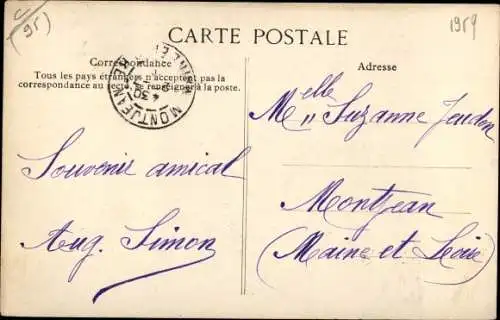 (95)
1959
CARTE POSTALE
Correspondance
Tous les pays étrangers n'acceptent pas la
correspondance au recto. (Se renseigner à la poste.)
Adresse
MONTJEAN
Souvenir amical
Aug. Simon
Melle Suzanne
Montjean
(Maine et Loire)